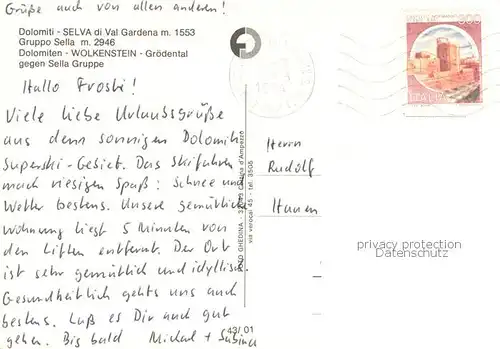 Grüße auch von allen anderen!
Dolomiti - SELVA di Val Gardena m. 1553
Gruppo Sella m. 2946
Dolomiten - WOLKENSTEIN - Grödental
gegen Sella Gruppe
Hallo Froski!
Viele liebe Urlaubsgrüße
aus dem sonnigen Dolomiti
Superski-Gebiet. Das Skifahren
mach riesigen Spaß: Schnee und
Wetter bestens. Unsere gemütliche
Wohnung liegt 5 Minuten von
den Liften entfernt. Der Ort
ist sehr gemütlich und idyllisch.
Gesundheitlich gehts uns auch
bestens. Laß es Dir auch gut
gehen. Bis bald Michael + Sabine
43/01
FOTO GHEDINA - 32043 Cortina d'Ampezzo
via verocai 45 - tel. 3506
Herrn
Rudolf
Hanen
300
ITALIA
privacy protection
Datenschutz